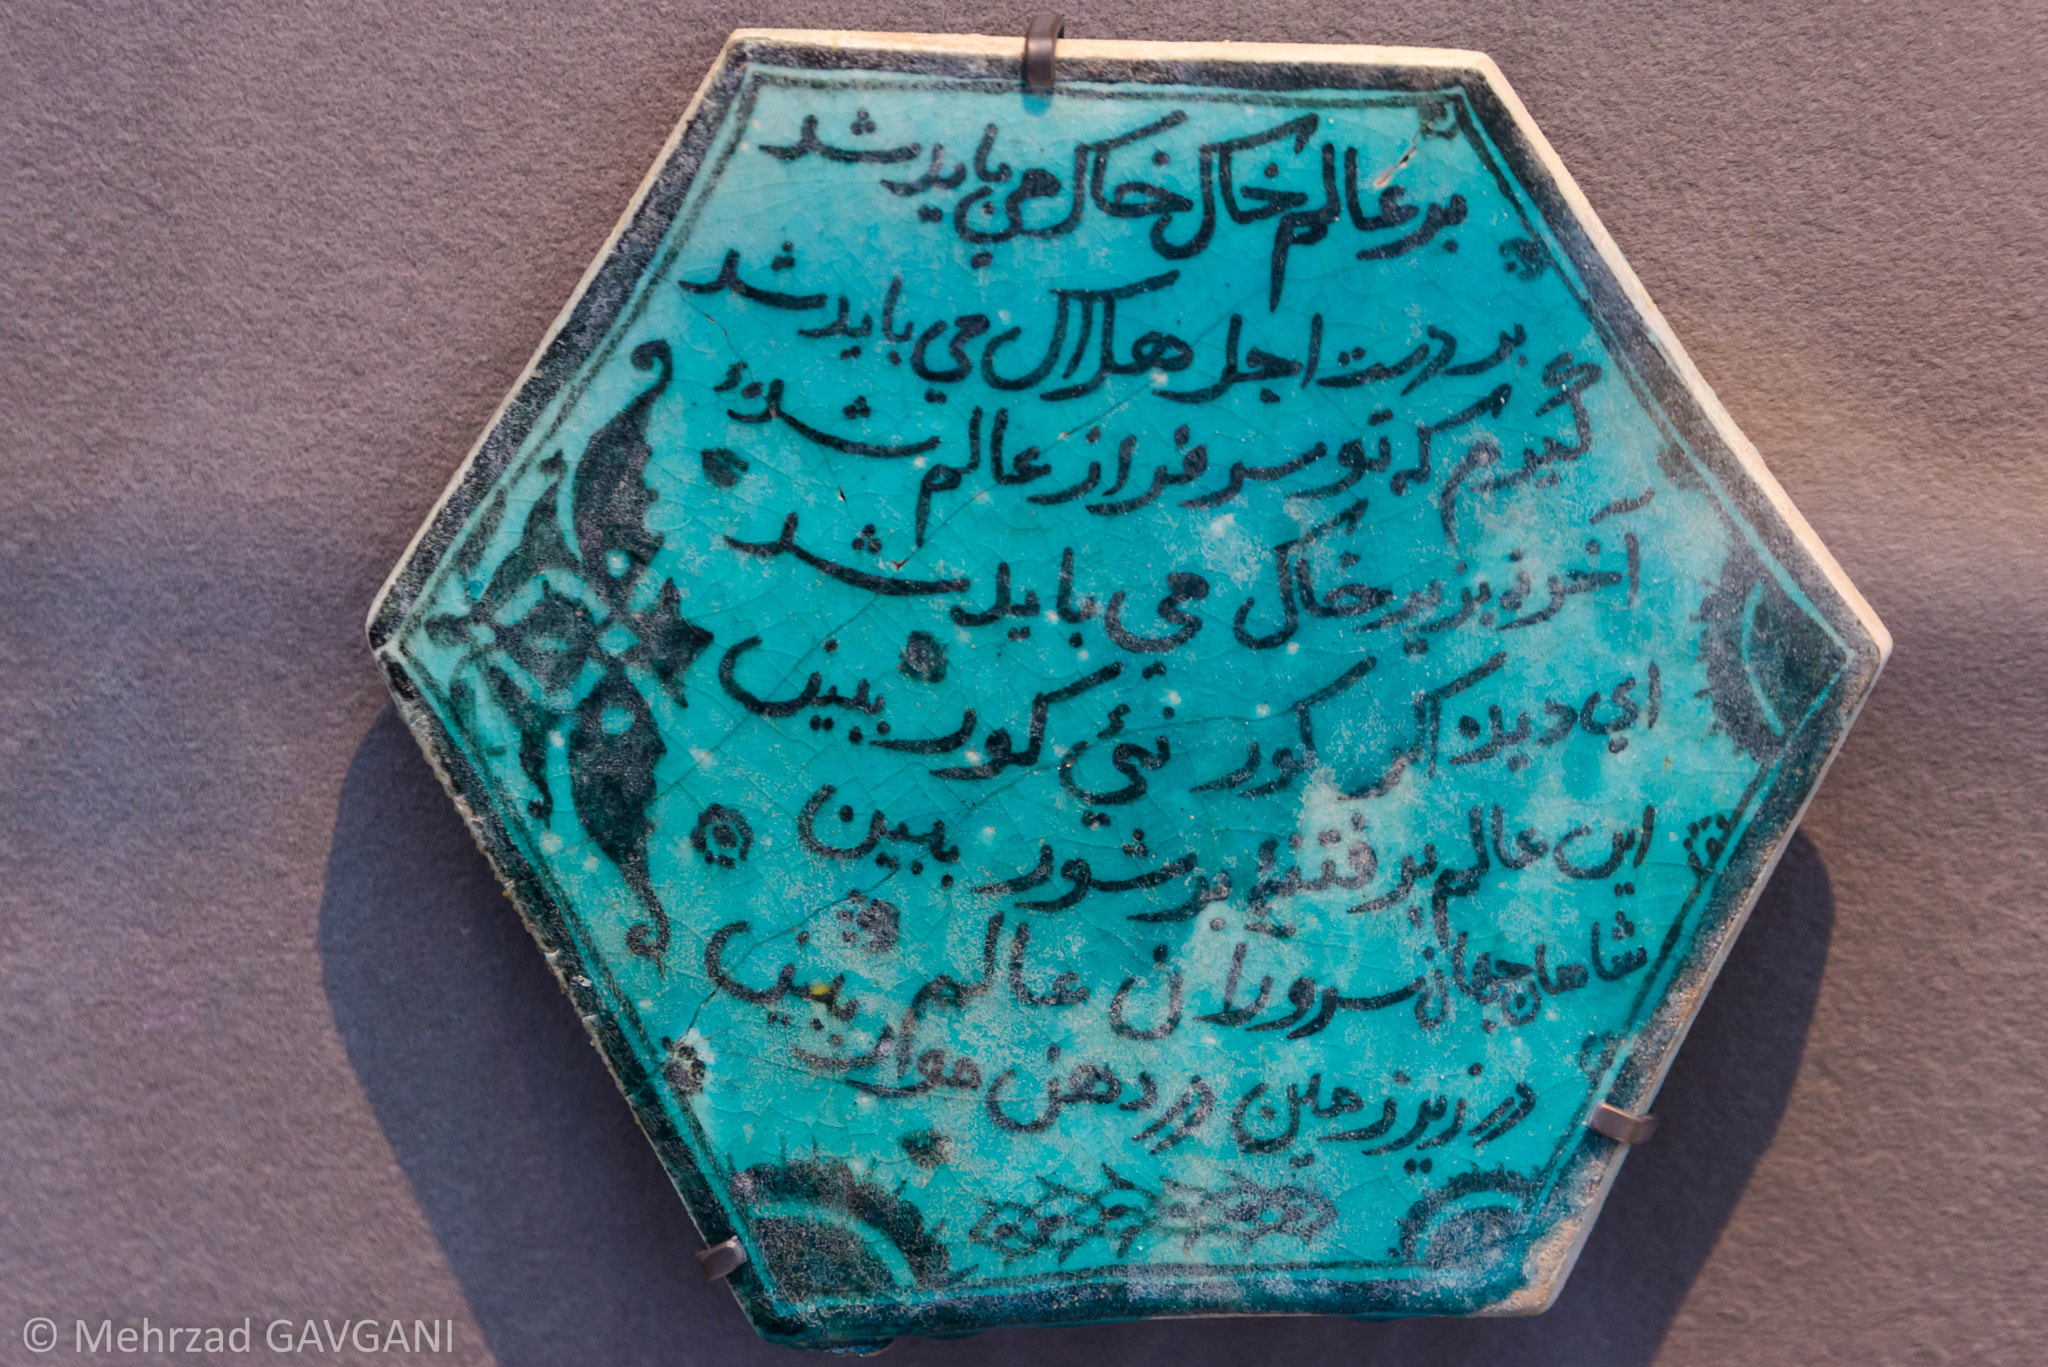 بر عالم خاک خاک می باید شد
بر دست اجل هلاک می باید شد
گیرم که تو سرفراز عالم شدهٔ
آخر نه بزیر خاک می باید شد
ای دیده اگر کور نئی کور ببین
این عالم پر فتنه پر شور ببین
شاهان جهان سروران عالم ببین
در زیر زمین در دهن موران ببین
© Mehrzad GAVGANI